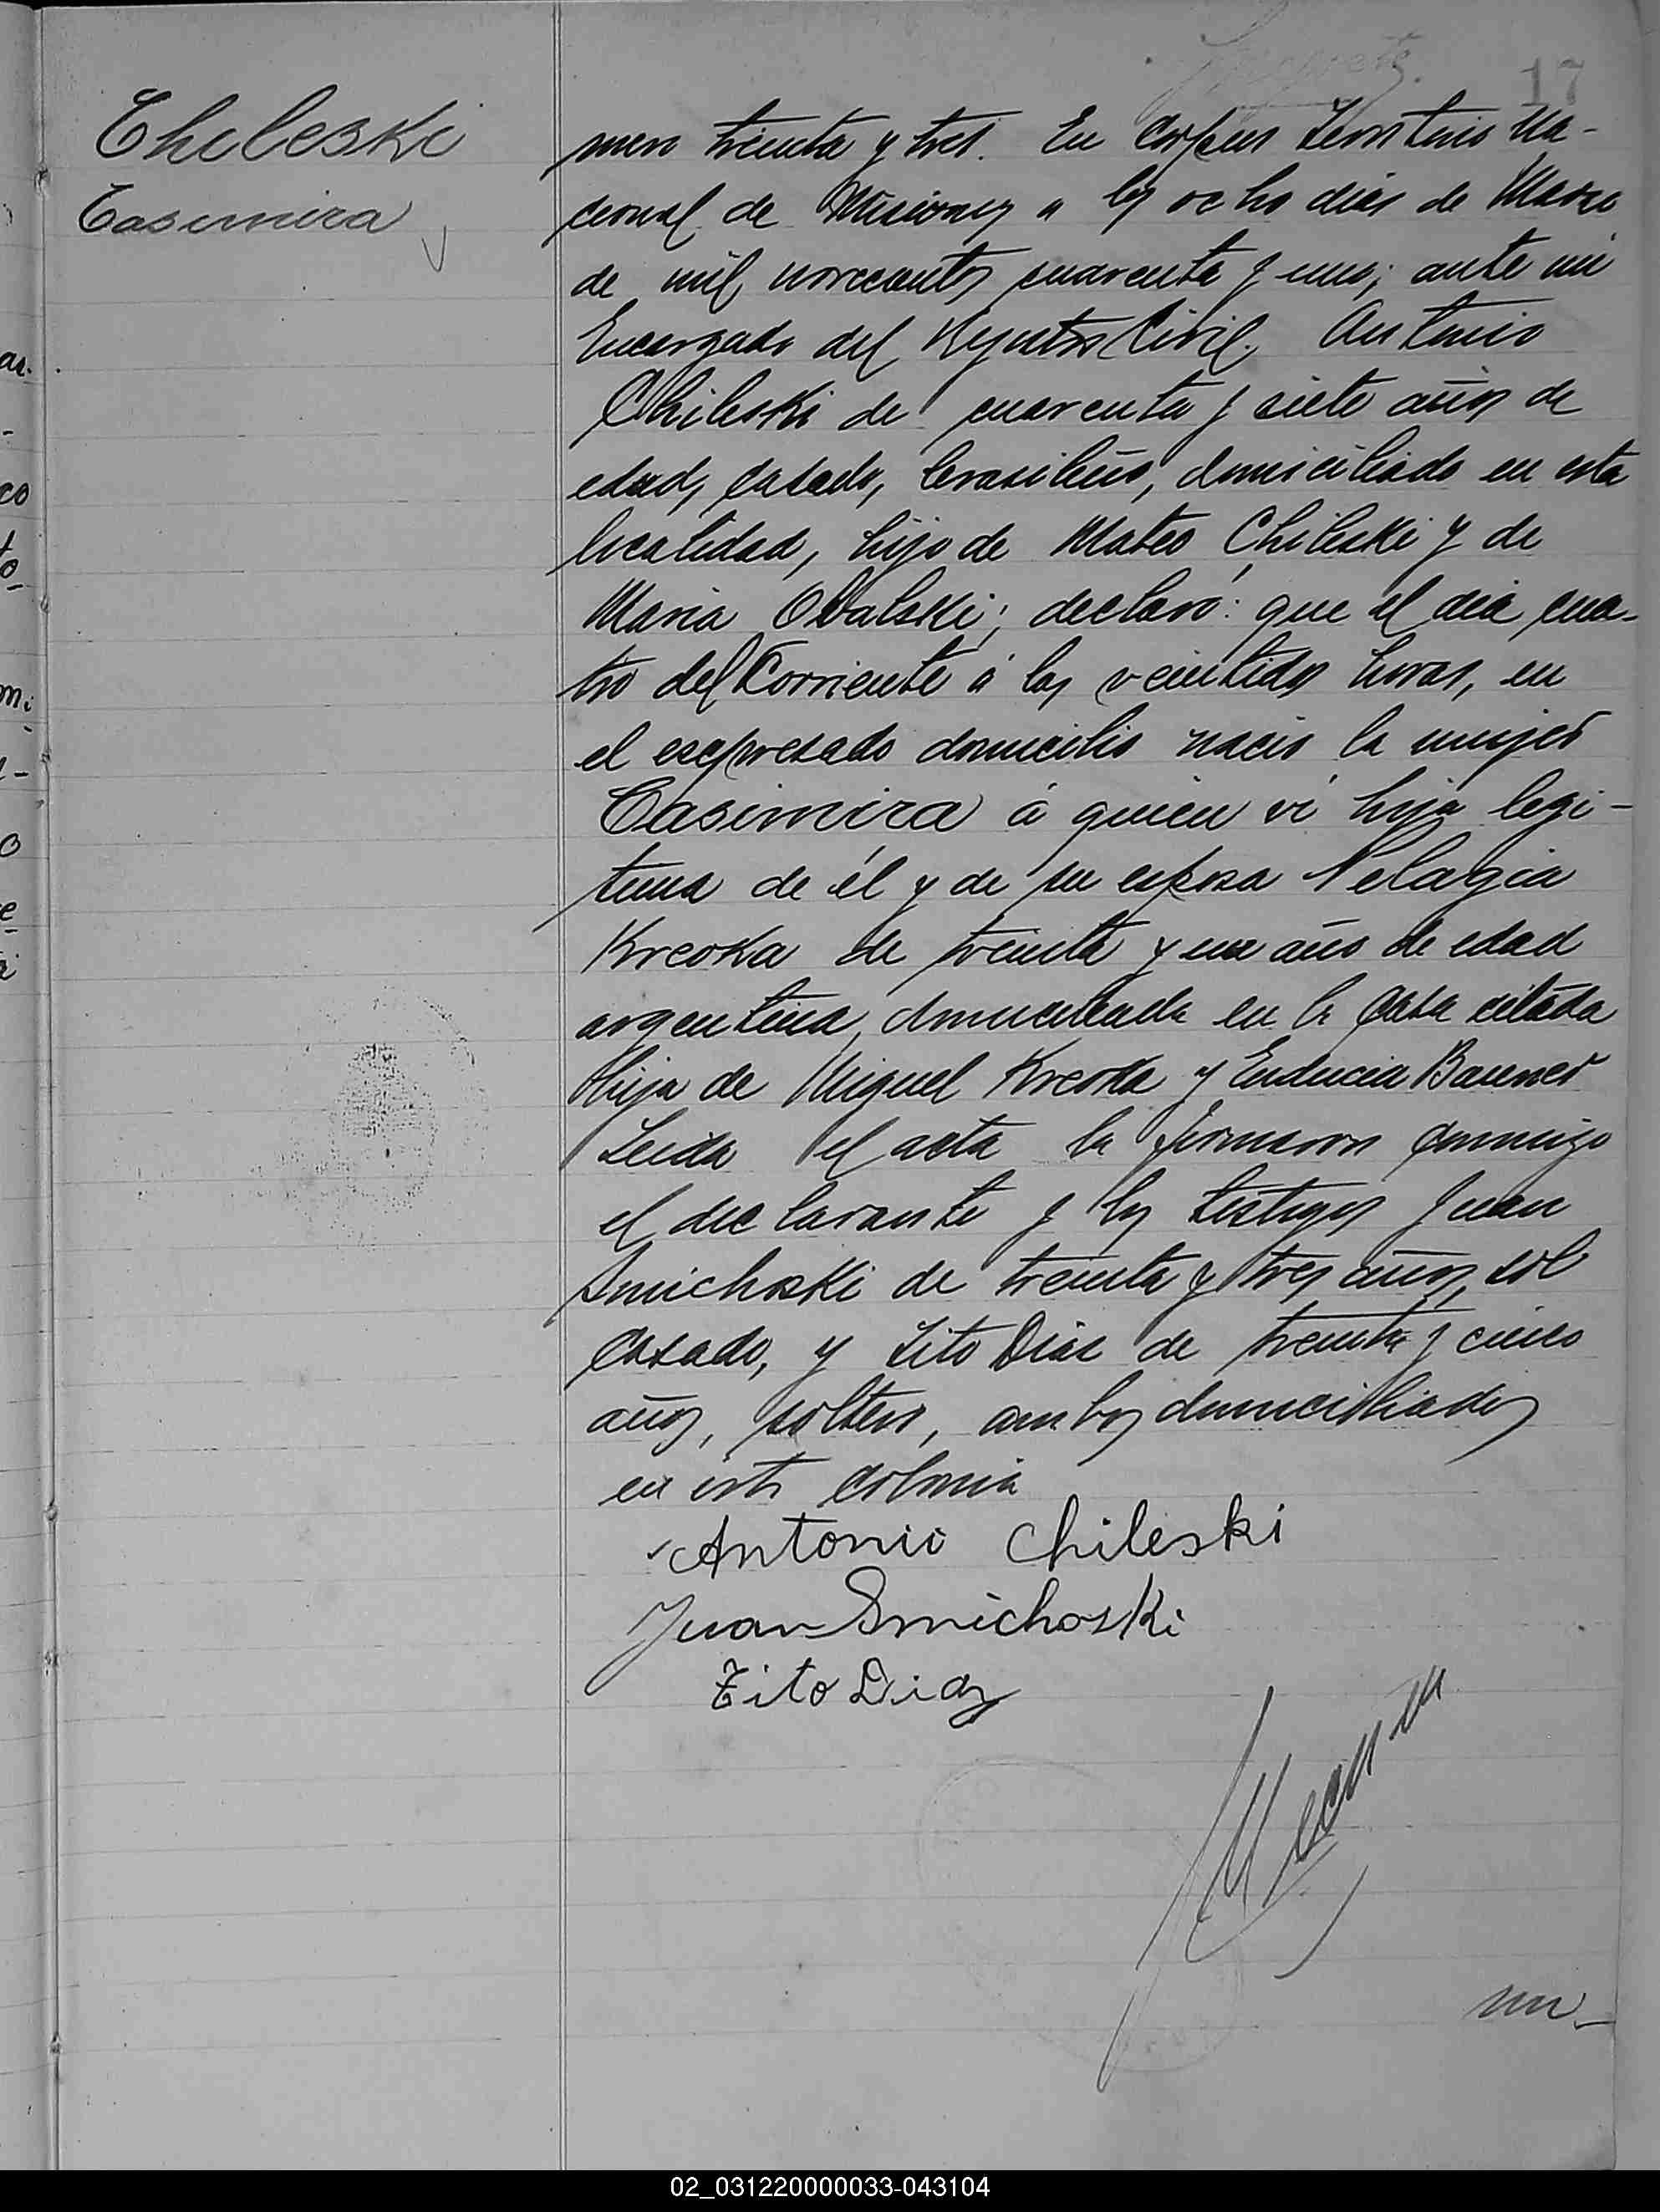 17
Chileski
Casimira
mero treinta y tres. En Corpus Territorio Na-
cional de Misiones a los ocho dias de Marzo
de mil novecientos cuarenta y uno; ante mi
Encargado del Registro Civil. Antonio
Chileski de cuarenta y siete años de
edad, casado, brasileño, domiciliado en esta
localidad, hijo de Mateo Chileski y de
Maria Obalski; declaró: que el dia cua-
tro del Corriente á las veintidos horas, en
el expresado domicilio nacio la mujer
Casimira á quien vi hija legi-
tima de él y de su esposa Pelagia
Kreska de treinta y un año de edad
argentina, domiciliada en la casa citada
hija de Miguel Kreska y
Leida el acta la firmaron conmigo
el declarante y los testigos Juan
Smichoski de treinta y tres años, sol
casado, y Tito Dias de treinta y cinco
años, soltero, ambos domiciliados
en esta colonia
Antonio Chileski
Juan Smichoski
Tito Diaz
nu-
02_031220000033-043104